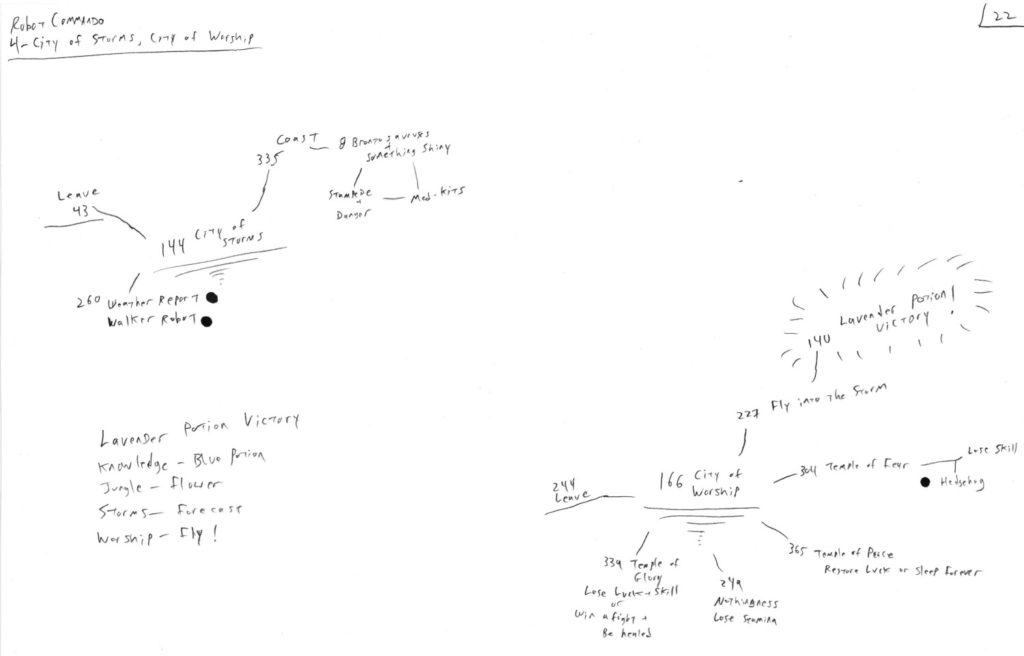 Robot Commando
4-City of Storms, City of Worship
22
Coast
335
8 Brontosauruses
+
Something Shiny
Stampede
+
Danger
Med-Kits
Leave
43
144 City of
Storms
260 Weather Report
Walker Robot
Lavender Potion!
Victory!
140
227 Fly into the Storm
Lavender Potion Victory
Knowledge - Blue Potion
Jungle - Flower
Storms - Forecast
Worship - Fly!
166 City of
Worship
244
Leave
304 Temple of Fear
Lose Skill
Hedgehog
365 Temple of Peace
Restore Luck or Sleep Forever
339 Temple of
Glory
Lose Luck + Skill
or
Win a fight +
Be healed
249
Nothingness
Lose Stamina